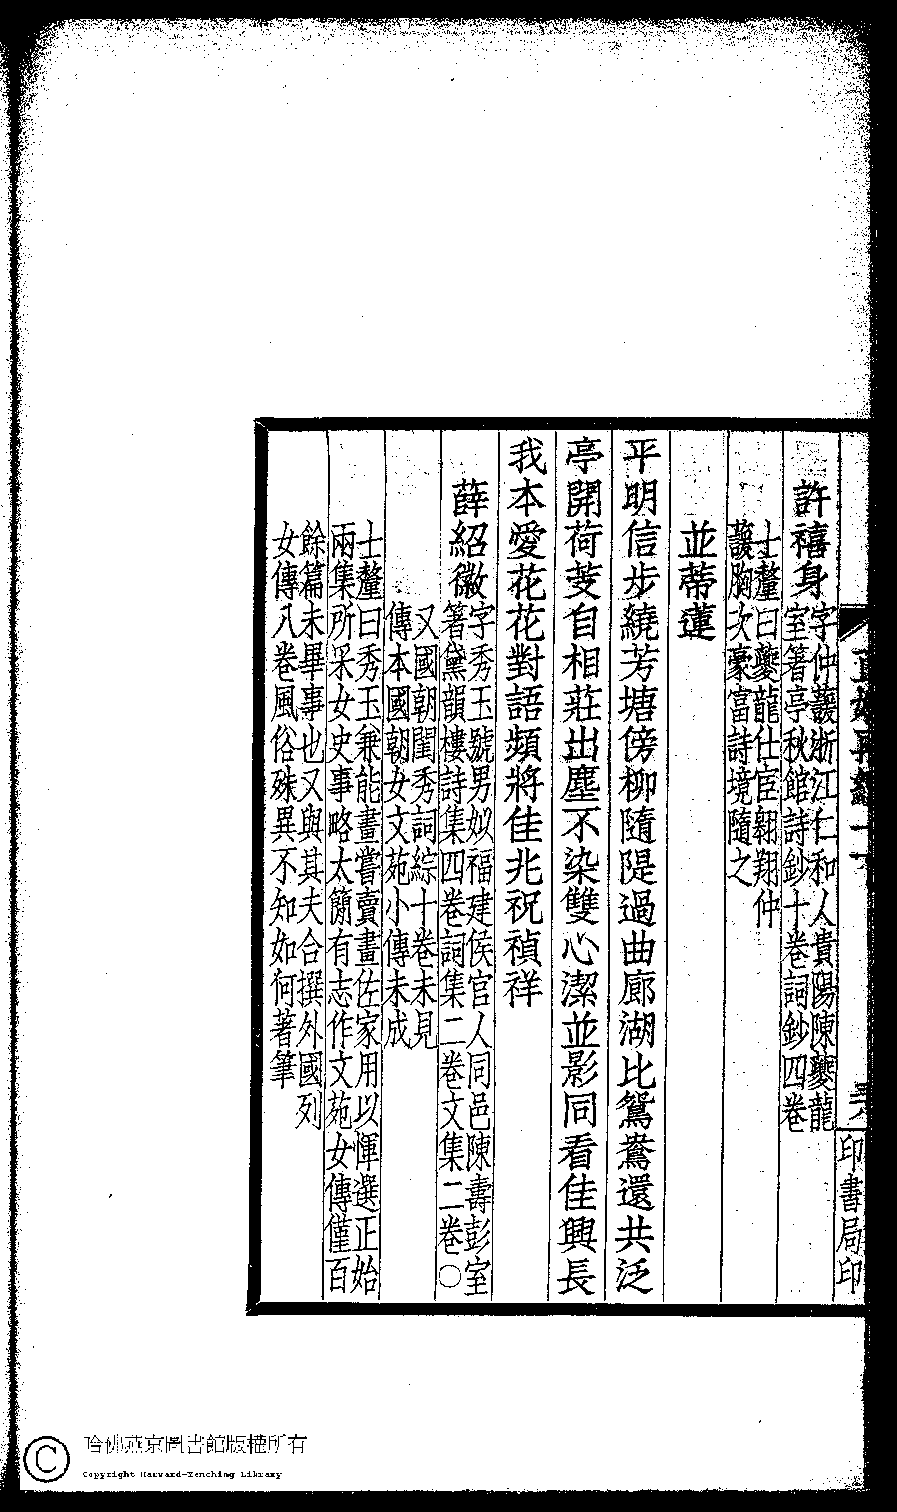 許禧身
字仲萲浙江仁和人貴陽陳夔龍
室箸亭秋館詩鈔十卷詞鈔四卷
士釐曰夔龍仕宦翱翔仲
萲胸次豪富詩境隨之
並蒂蓮
平明信步繞芳塘傍柳隨隄過曲廊湖比鴛鴦還共泛
亭開荷芰自相莊出塵不染雙心潔並影同看佳興長
我本愛花花對語頻將佳兆祝禎祥
薛紹徽
字秀玉號男姒福建侯官人同邑陳壽彭室
箸黛韻樓詩集四卷詞集二卷文集二卷〇
又國朝閨秀詞綜十卷未見
傳本國朝女文苑小傳未成
士釐曰秀玉兼能畫嘗賣畫佐家用以惲選正始
兩集所采女史事略太簡有志作文苑女傳僅百
餘篇未畢事也又與其夫合撰外國列
女傳八卷風俗殊異不知如何著筆
印書局印
哈佛燕京圖書館版權所有
Copyright Harvard-Yenching Library